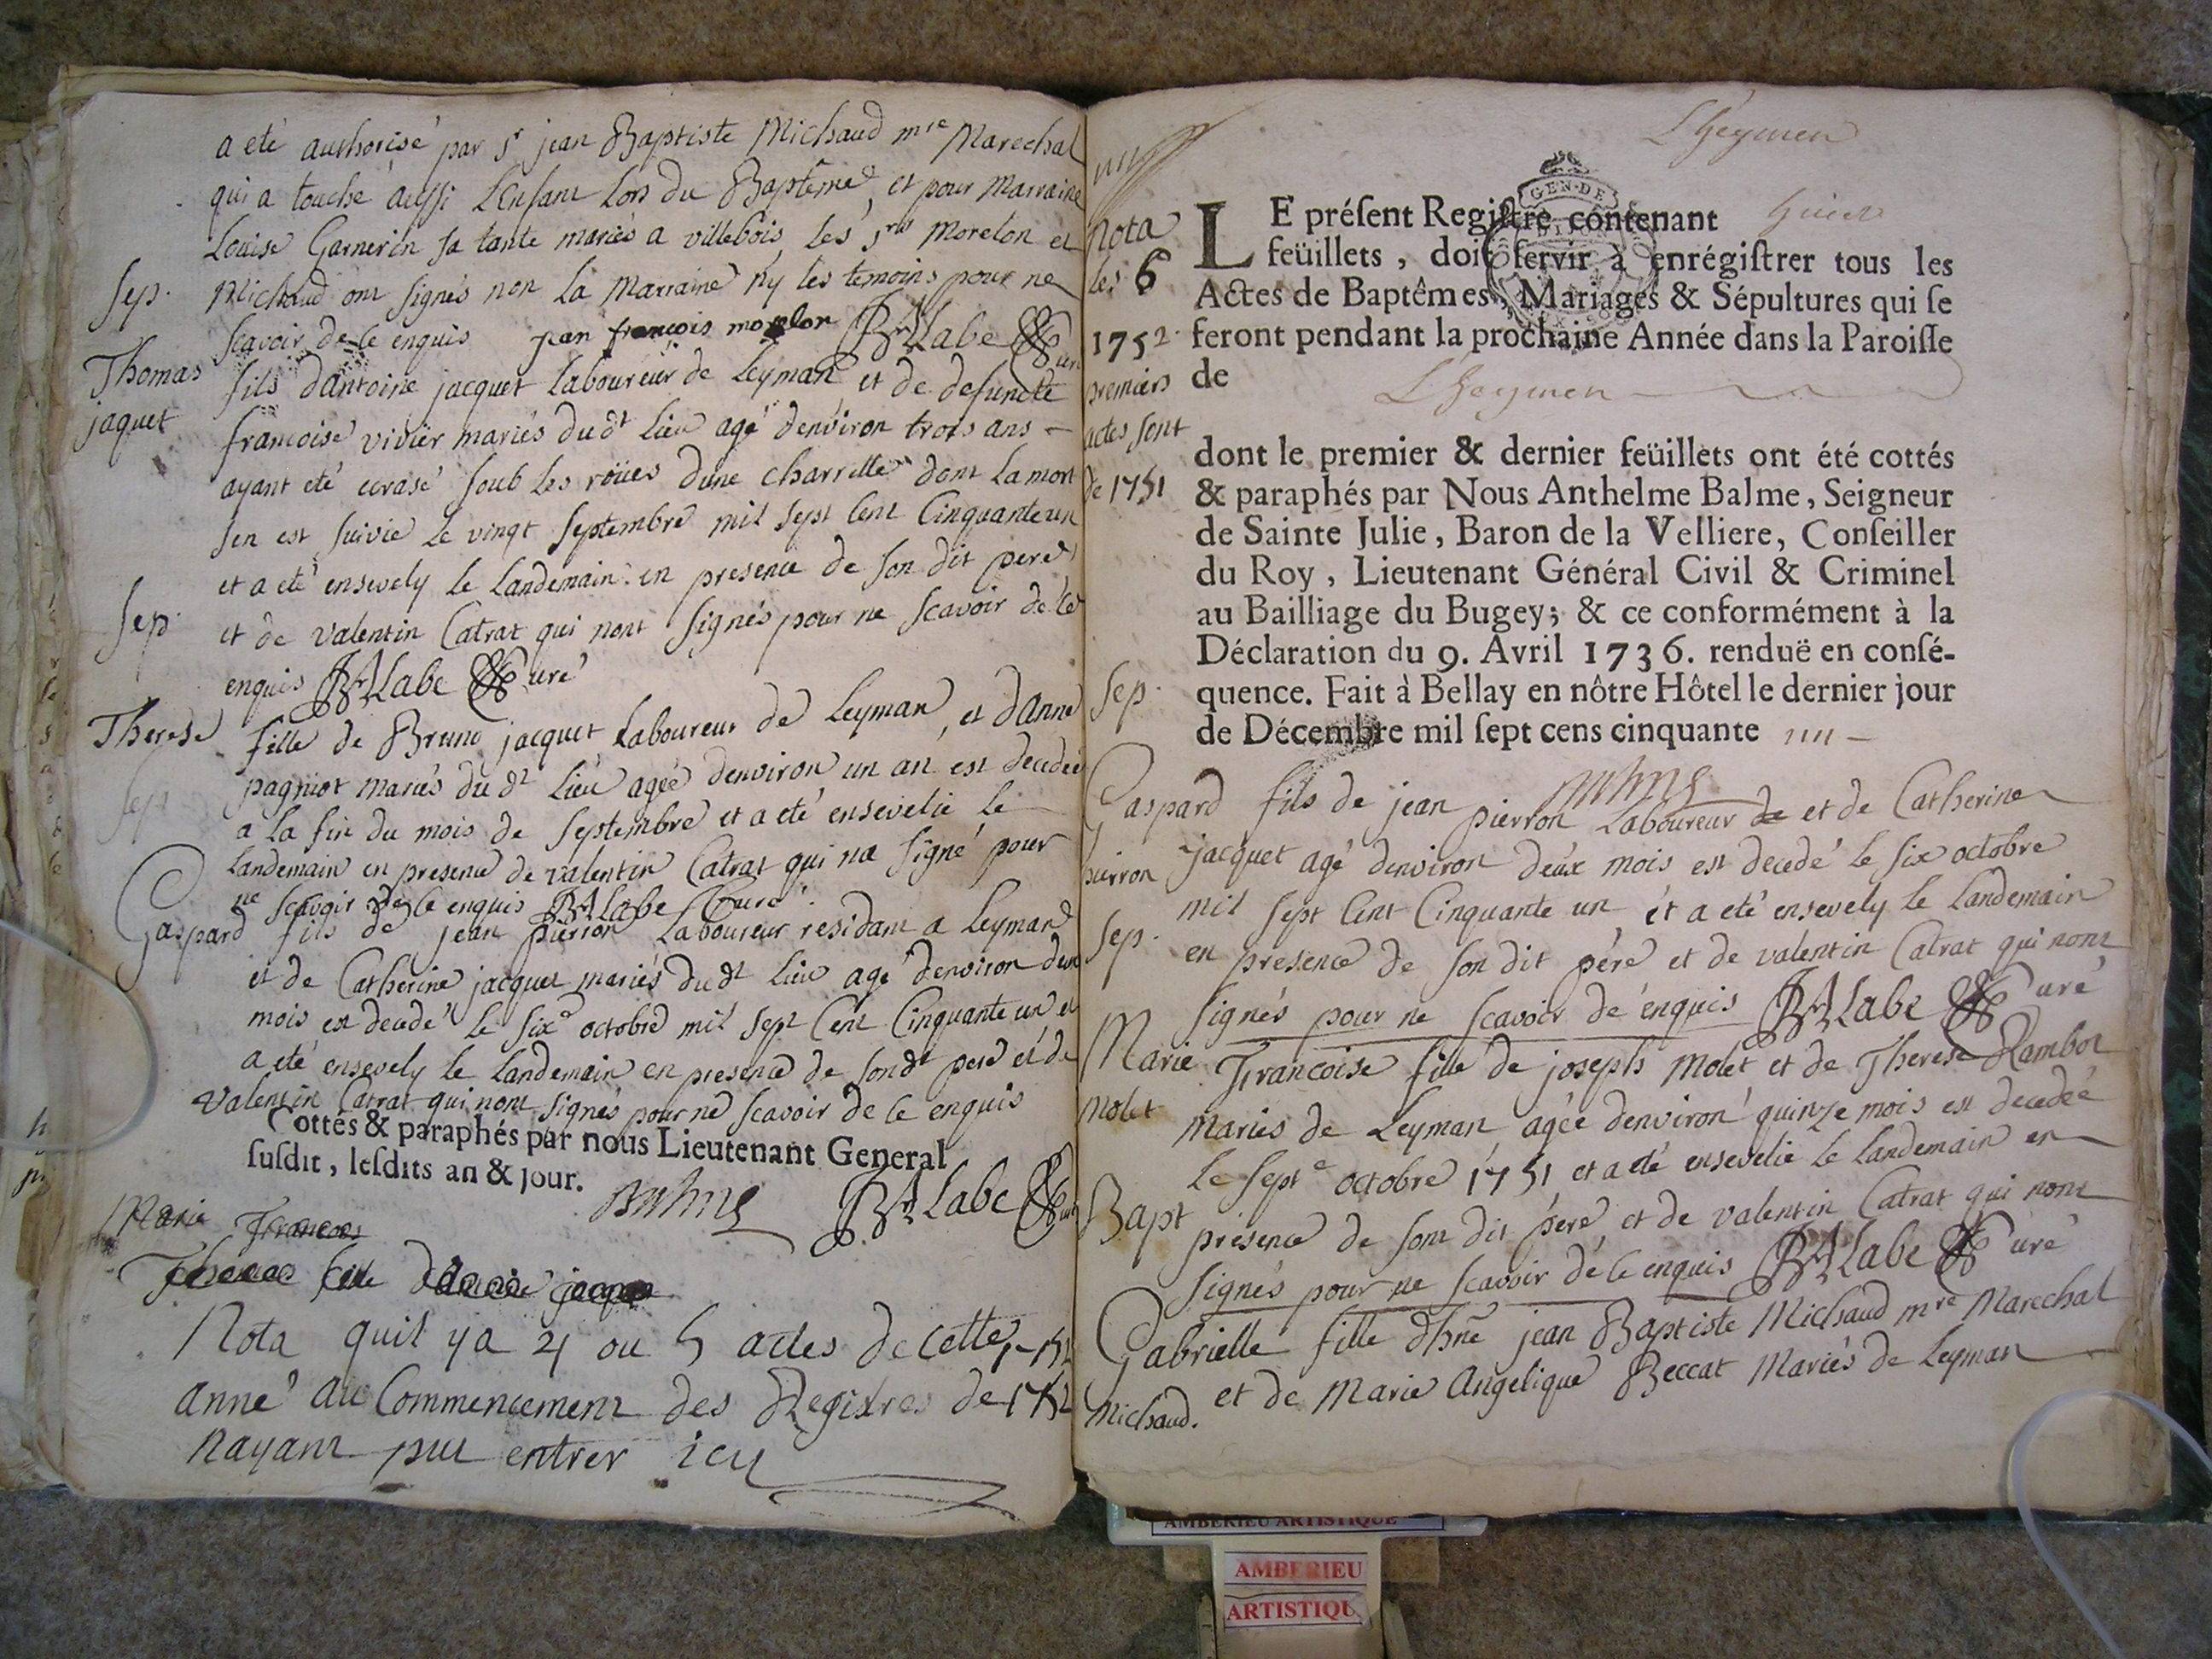 a eté authorisé par Sr jean Baptiste Michaud mre Marechal
qui a touché aussi L'Enfant lors du Baptême, et pour Marraine
Louise Garnerin sa tante mariés a villebois les srs Morelon et
Sep. Michaud ont signés non la Marraine ny les temoins pour ne
scavoir de ce enquis jean françois morelon BALabe Curé
Thomas fils d'antoine jacquet Laboureur de Leyman et de defuncte
jaquet francoise vivier mariés du dt Lieu agé d'environ trois ans
ayant eté ecrasé soub les roües d'une charrette dont la mort
s'en est suivie le vingt septembre mil sept Cent Cinquante un
et a eté ensevely le landemain en presence de son dit pere
Sep. et de valentin Catrat qui n'ont signés pour ne scavoir de ce
enquis BALabe Curé
Therese fille de Bruno jacquet Laboureur de Leyman, et d'anne
pagniot mariés du dt Lieu agée denviron un an est decedée
Sep. a la fin du mois de septembre et a eté ensevelie le
landemain en presence de valentin Catrat qui n'a signé pour
ne scavoir de ce enquis BALabe Curé
Gaspard fils de jean pierron Laboureur residant a Leyman
et de Catherine jacquet mariés du dt Lieu agé denviron deux
mois est decedé le six octobre mil sept Cent Cinquante un et
a eté ensevely le landemain en presence de son dt pere et de
valentin Catrat qui n'ont signés pour ne scavoir de ce enquis
Cottés & paraphés par nous Lieutenant General
susdit, lesdits an & jour.
BALabe Curé
Marie Francoise
Therese fille
Nota quil y a 4 ou 5 actes de cette
anné au Commencement des Registres de 1752
nayant pu entrer icy
Lheymen
LE présent Registre contenant huict
feüillets, doit servir à enrégistrer tous les
Actes de Baptêmes, Mariages & Sépultures qui se
feront pendant la prochaine Année dans la Paroisse
de Lheymen
dont le premier & dernier feüillets ont été cottés
& paraphés par Nous Anthelme Balme, Seigneur
de Sainte Julie, Baron de la Velliere, Conseiller
du Roy, Lieutenant Général Civil & Criminel
au Bailliage du Bugey; & ce conformément à la
Déclaration du 9. Avril 1736. renduë en consé-
quence. Fait à Bellay en nôtre Hôtel le dernier jour
de Décembre mil sept cens cinquante un
GEN·DE
DIJON
Nota
les 6
1752
premiers
actes sont
de 1751
Sep.
Gaspard fils de jean pierron Laboureur de et de Catherine
pierron jacquet agé denviron deux mois est decedé le six octobre
mil sept Cent Cinquante un, et a eté ensevely le landemain
Sep. en presence de son dit pére et de valentin Catrat qui n'ont
signés pour ne scavoir de enquis BALabe Curé
Marie Francoise fille de joseph Molet et de Therese Rambot
Molet mariés de Leyman agée denviron quinze mois est decedée
le septe octobre 1751 et a eté ensevelie le landemain en
Bapt présence de son dit pére, et de valentin Catrat qui n'ont
signés pour ne scavoir de ce enquis BALabe Curé
Gabrielle fille d'hne jean Baptiste Michaud mre Marechal
Michaud. et de Marie Angelique Beccat Mariés de Leyman
AMBERIEU ARTISTIQUE
AMBERIEU
ARTISTIQU